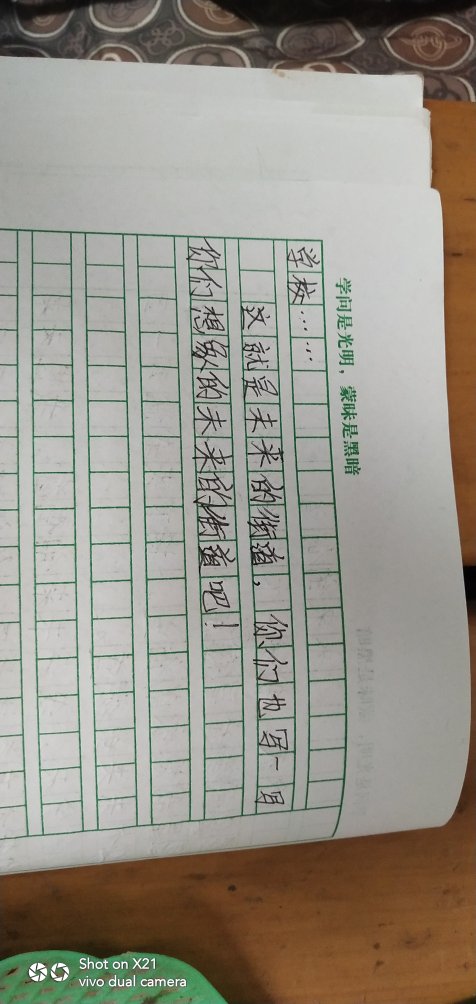 学问是光明，蒙昧是黑暗
学校……
这就是未来的街道，你们也写一写
你们想象的未来的街道吧！
Shot on X21
vivo dual camera